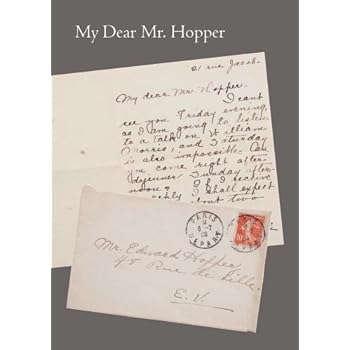 My Dear Mr. Hopper
21 rue Jacob-
My dear Mr. Hopper-
I can't
see you Friday evening,
as I am going to listen
to a talk on William
Morris, and Saturday
is also impossible. Can
you come right after
dejeuner Sunday after-
noon? If I receive
no reply I shall expect
about two
Mr. Edward Hopper
48 Rue de Lille
E.V.
PARIS
DEPART